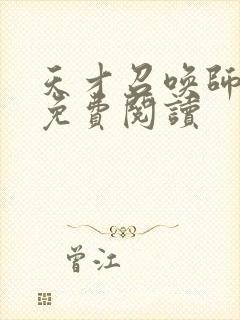 天才召喚師
免費閱讀
曾江